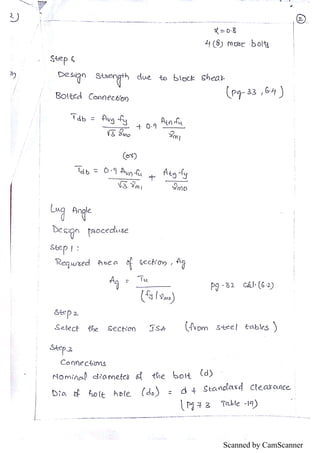 2)
②
α = 0.8
4 (8) more bolts
Step 6
Design Strength due to block Shear
(pg-33, 6.4)
Bolted Connection
Tdb = Avg fy / √3 γmo + 0.9 Atn fu / γm1
(or)
Tdb = 0.9 Avn fu / √3 γm1 + Atg fy / γmo
Lug Angle
Design procedure
Step 1 :
Required Area of section, Ag
Ag = Tu / (fy / γmo)
pg-32 cal. (6.2)
Step 2
Select the Section ISA (from steel tables)
Step 3
Connections
Nominal diameter of the bolt (d)
Dia of bolt hole (do) = d + Standard clearance
(pg 73 Table -19)
Scanned by CamScanner